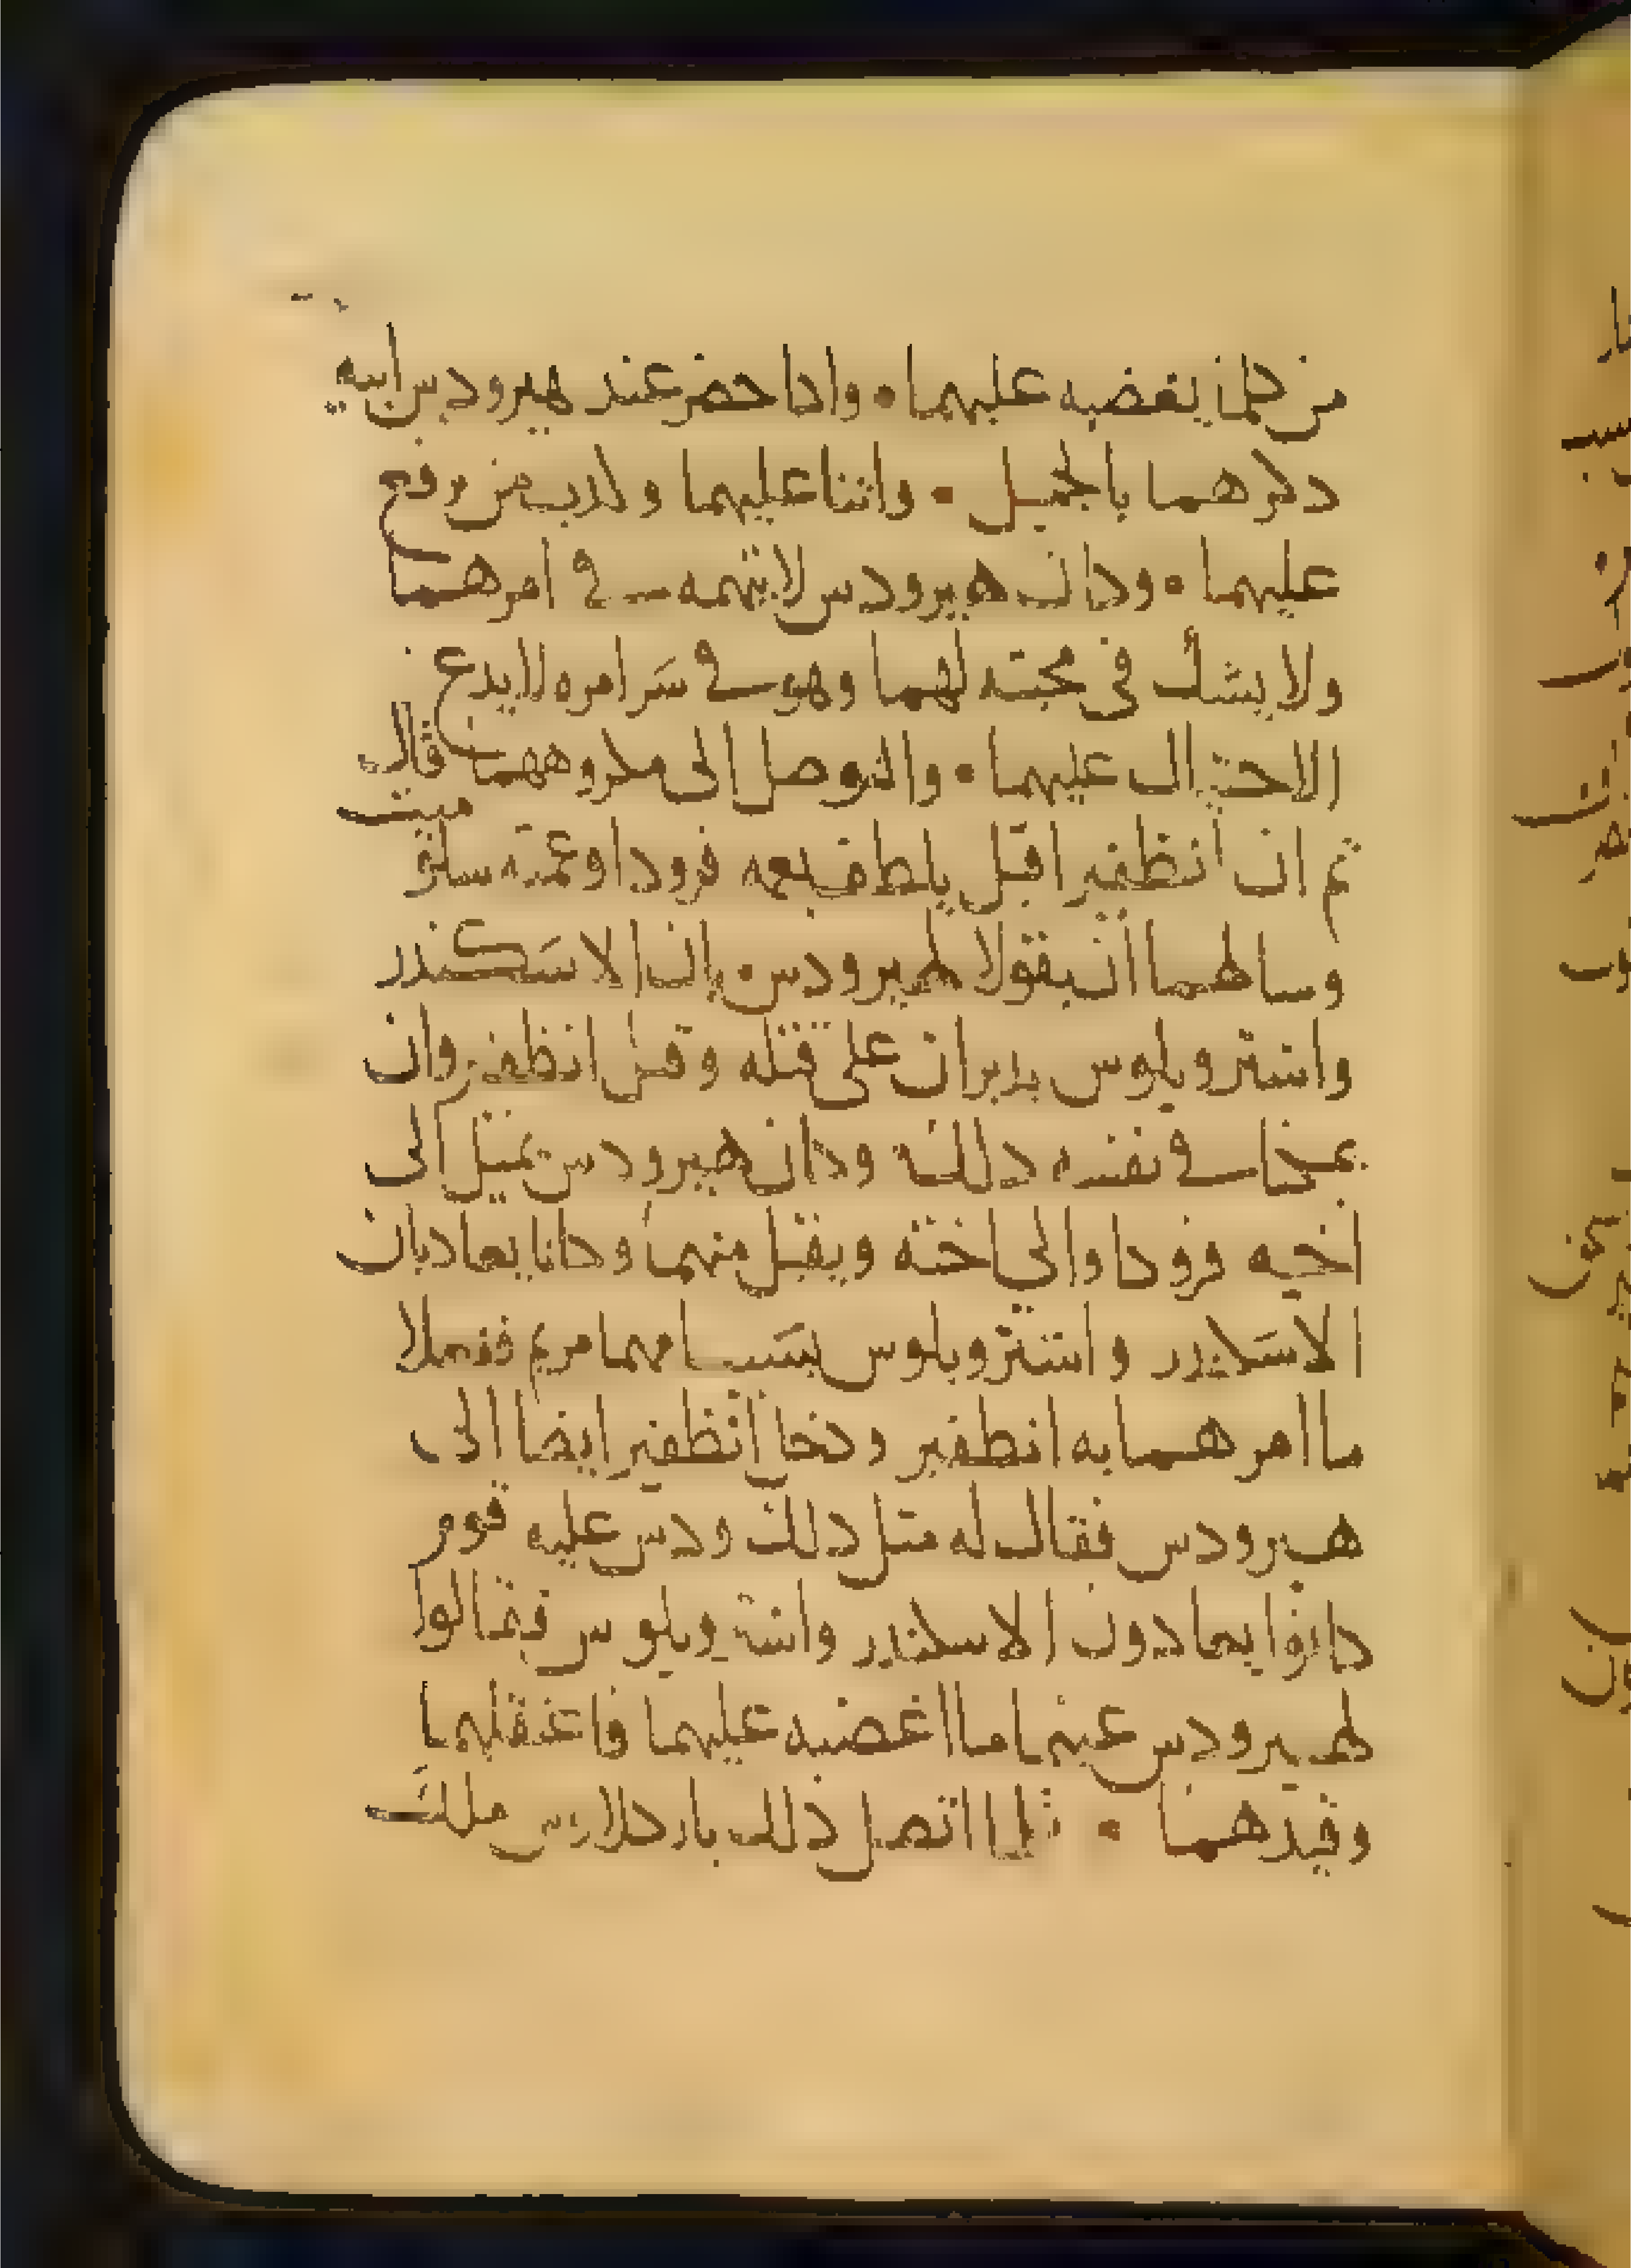 من كلن يغضبه عليهما • وادا حضر عند هيرودس ابيه
دكرهما بالجميل • واتنا عليهما وكدب من يرفع
عليهما • وكان هيرودس لا يتهمه في امرهما
ولا يشك في محبته لهما وهو في سر امره لا يدع
الاحتيال عليهما • والتوصل الى مكروههما قال
ميت
تم ان انظفير اقبل يلطف بعمه فرودا وعمته سلنى
وسالهما ان يقولا لهيرودس • بان الاسكندر
واستروبلوس يدبران على قتله وقتل انظفير وان
يمخا في نفسه دلك وكان هيرودس يميل الى
اخيه فرودا والى اخته ويقبل منهما وكانا يعاديان
الاسكندر واستتروبلوس بسبب امهما مريم ففعلا
ما امرهما به انطفير ودخا انظفير ايضا الى
هيرودس فقال له متل دلك ودس عليه قوم
كانوا يعادون الاسكندر واستروبلوس فقالوا
لهيرودس عنهما ما اغضبه عليهما فاعتقلهما
وقيدهما • فلما اتصل ذلك باركلاوس ملك